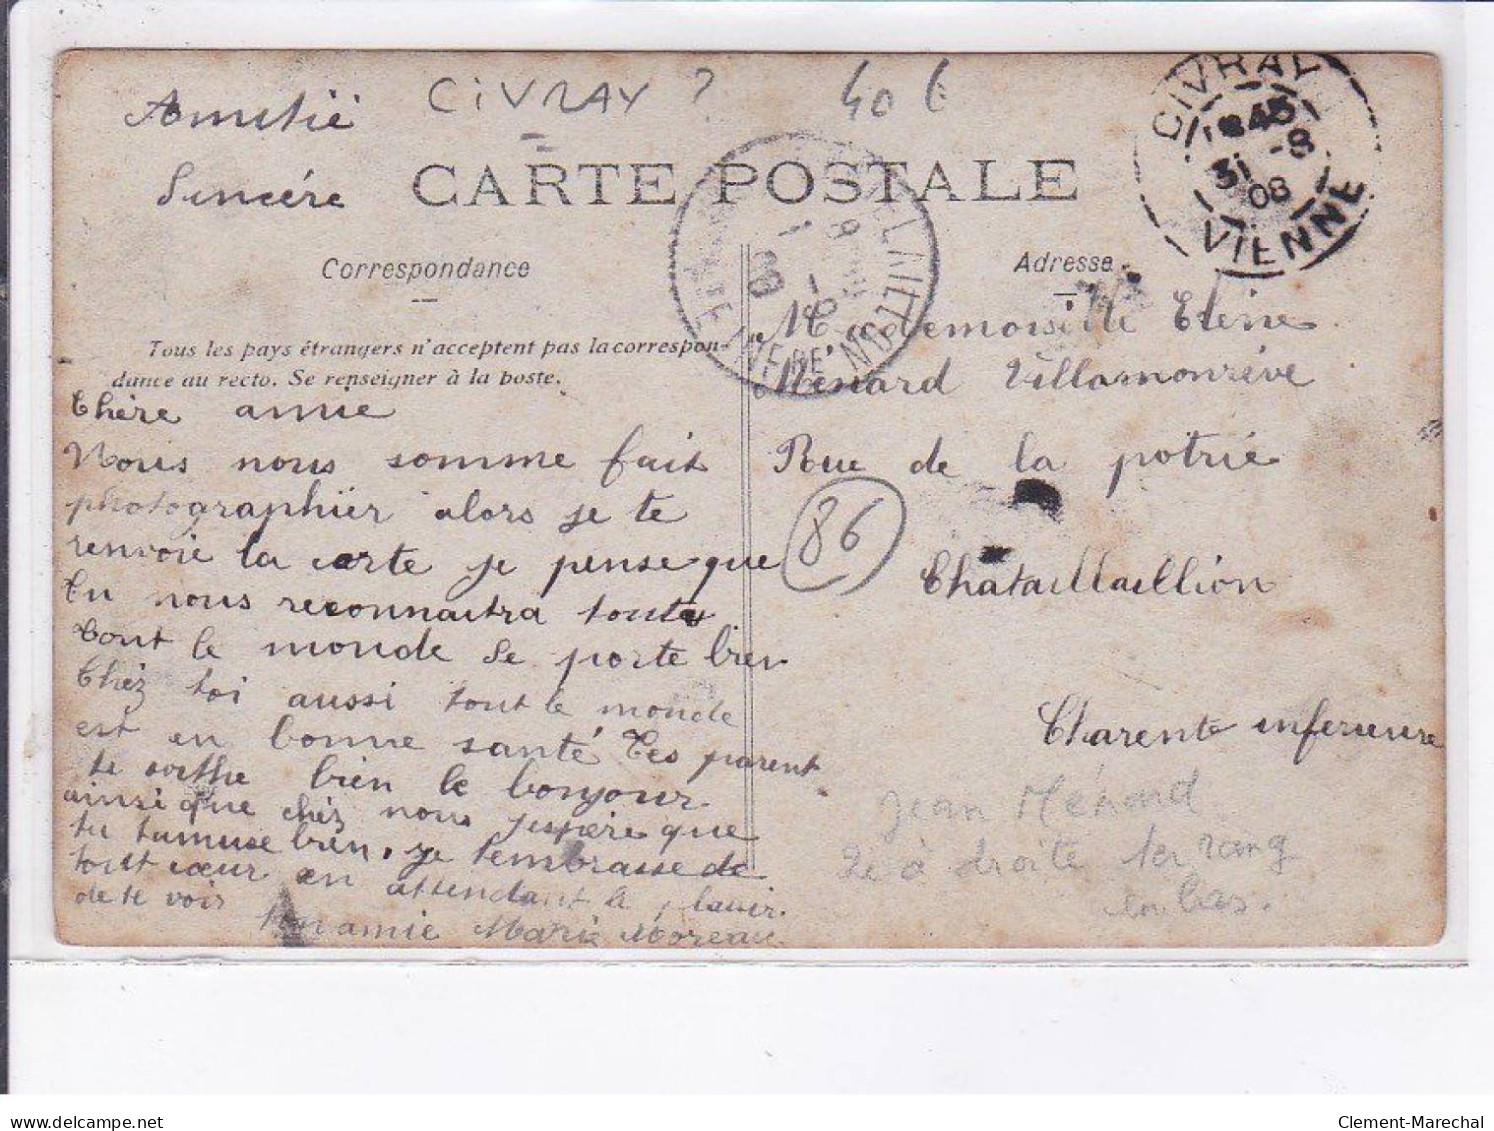 Amitié
Sincére
CIVRAY ?
40 €
CARTE POSTALE
CIVRAY
*45
31 -8
08
VIENNE
CHATELAILLON
CHARENTE INFERE
Correspondance
Adresse
Tous les pays étrangers n'acceptent pas la correspon-
dance au recto. Se renseigner à la poste.
Chère amie
Nous nous somme fait
photographiér alors je te
renvoie la carte je pense que
Tu nous reconnaitra toute
Tout le monde se porte bien
Chéz toi aussi tout le monde
est en bonne santé Tes parent
te soithe bien le bonjour
ainsi que chéz nous jespére que
tu tamuse bien. je tembrasse de
tout cœur en attendant le plaisir.
de te voir
ton amie Marie Moreau
Mademoiselle Elène
Ménard Villamonréve
Rue de la potrie
86
Chataillaillion
Charente inferieure
Jean Ménard
2e à droite 1er rang
en bas.
www.delcampe.net
Clement-Marechal